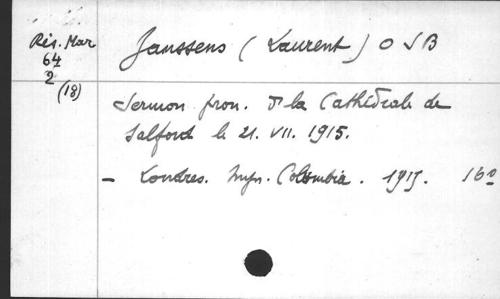 Rés. Mar
64
2
(18)
Janssens (Laurent) O S B
Sermon pron. ds la Cathédrale de
Salford le 21. VII. 1915.
- Londres. Impr. Colombia. 1915. 16°